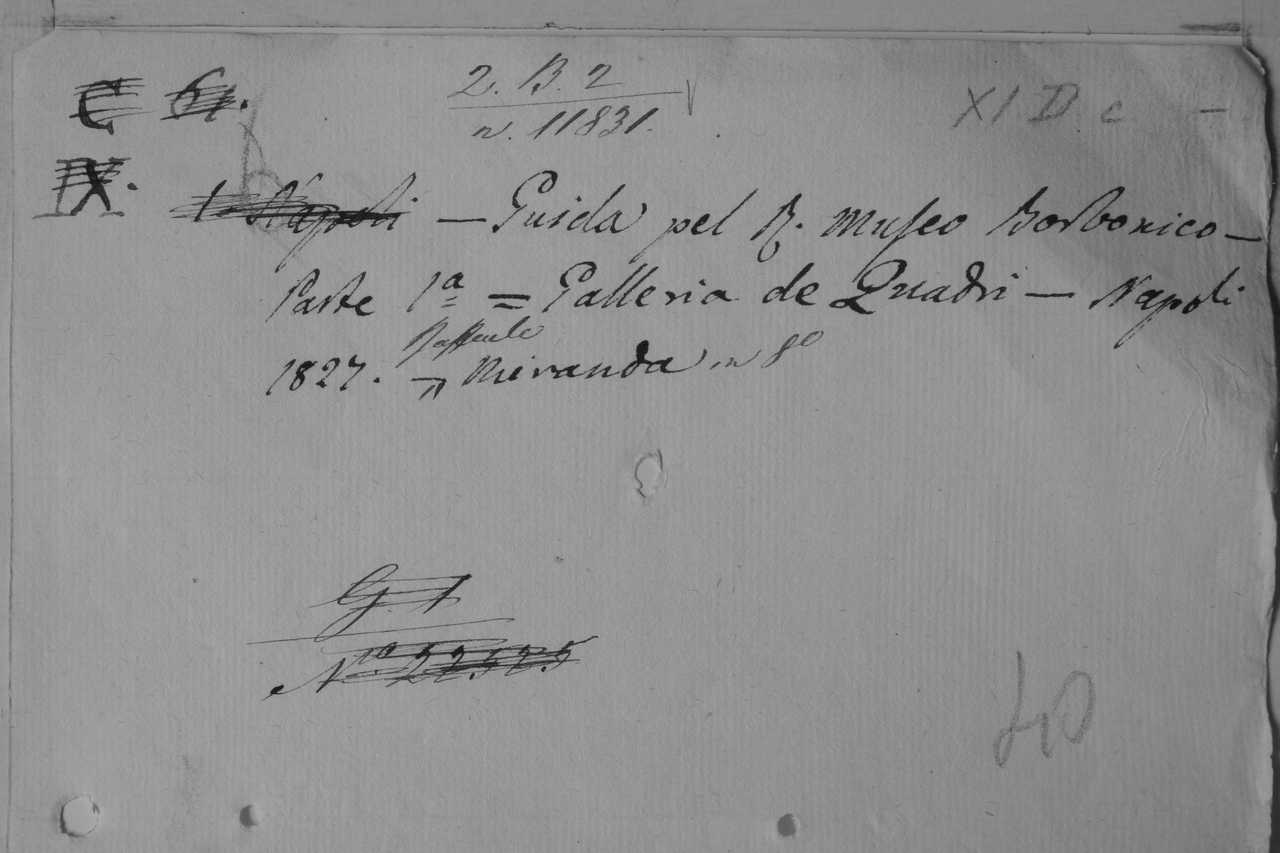 C 61.
2. B. 2
n. 11831.
XI D c –
IX.
1 Napoli — Guida pel R. Museo Borbonico —
Parte 1a = Galleria de Quadri — Napoli
1827. Raffaele
Miranda in 8o
G. 1
No 22525
40